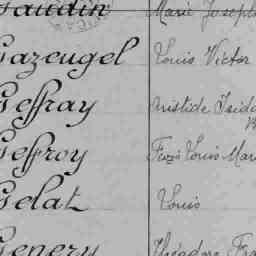 Gaudin Marie Joseph
Gazengel Louis Victor
Geffray Aristide Isido
Geffroy Louis Mari
Gelat Louis
Genery Théodore Fra